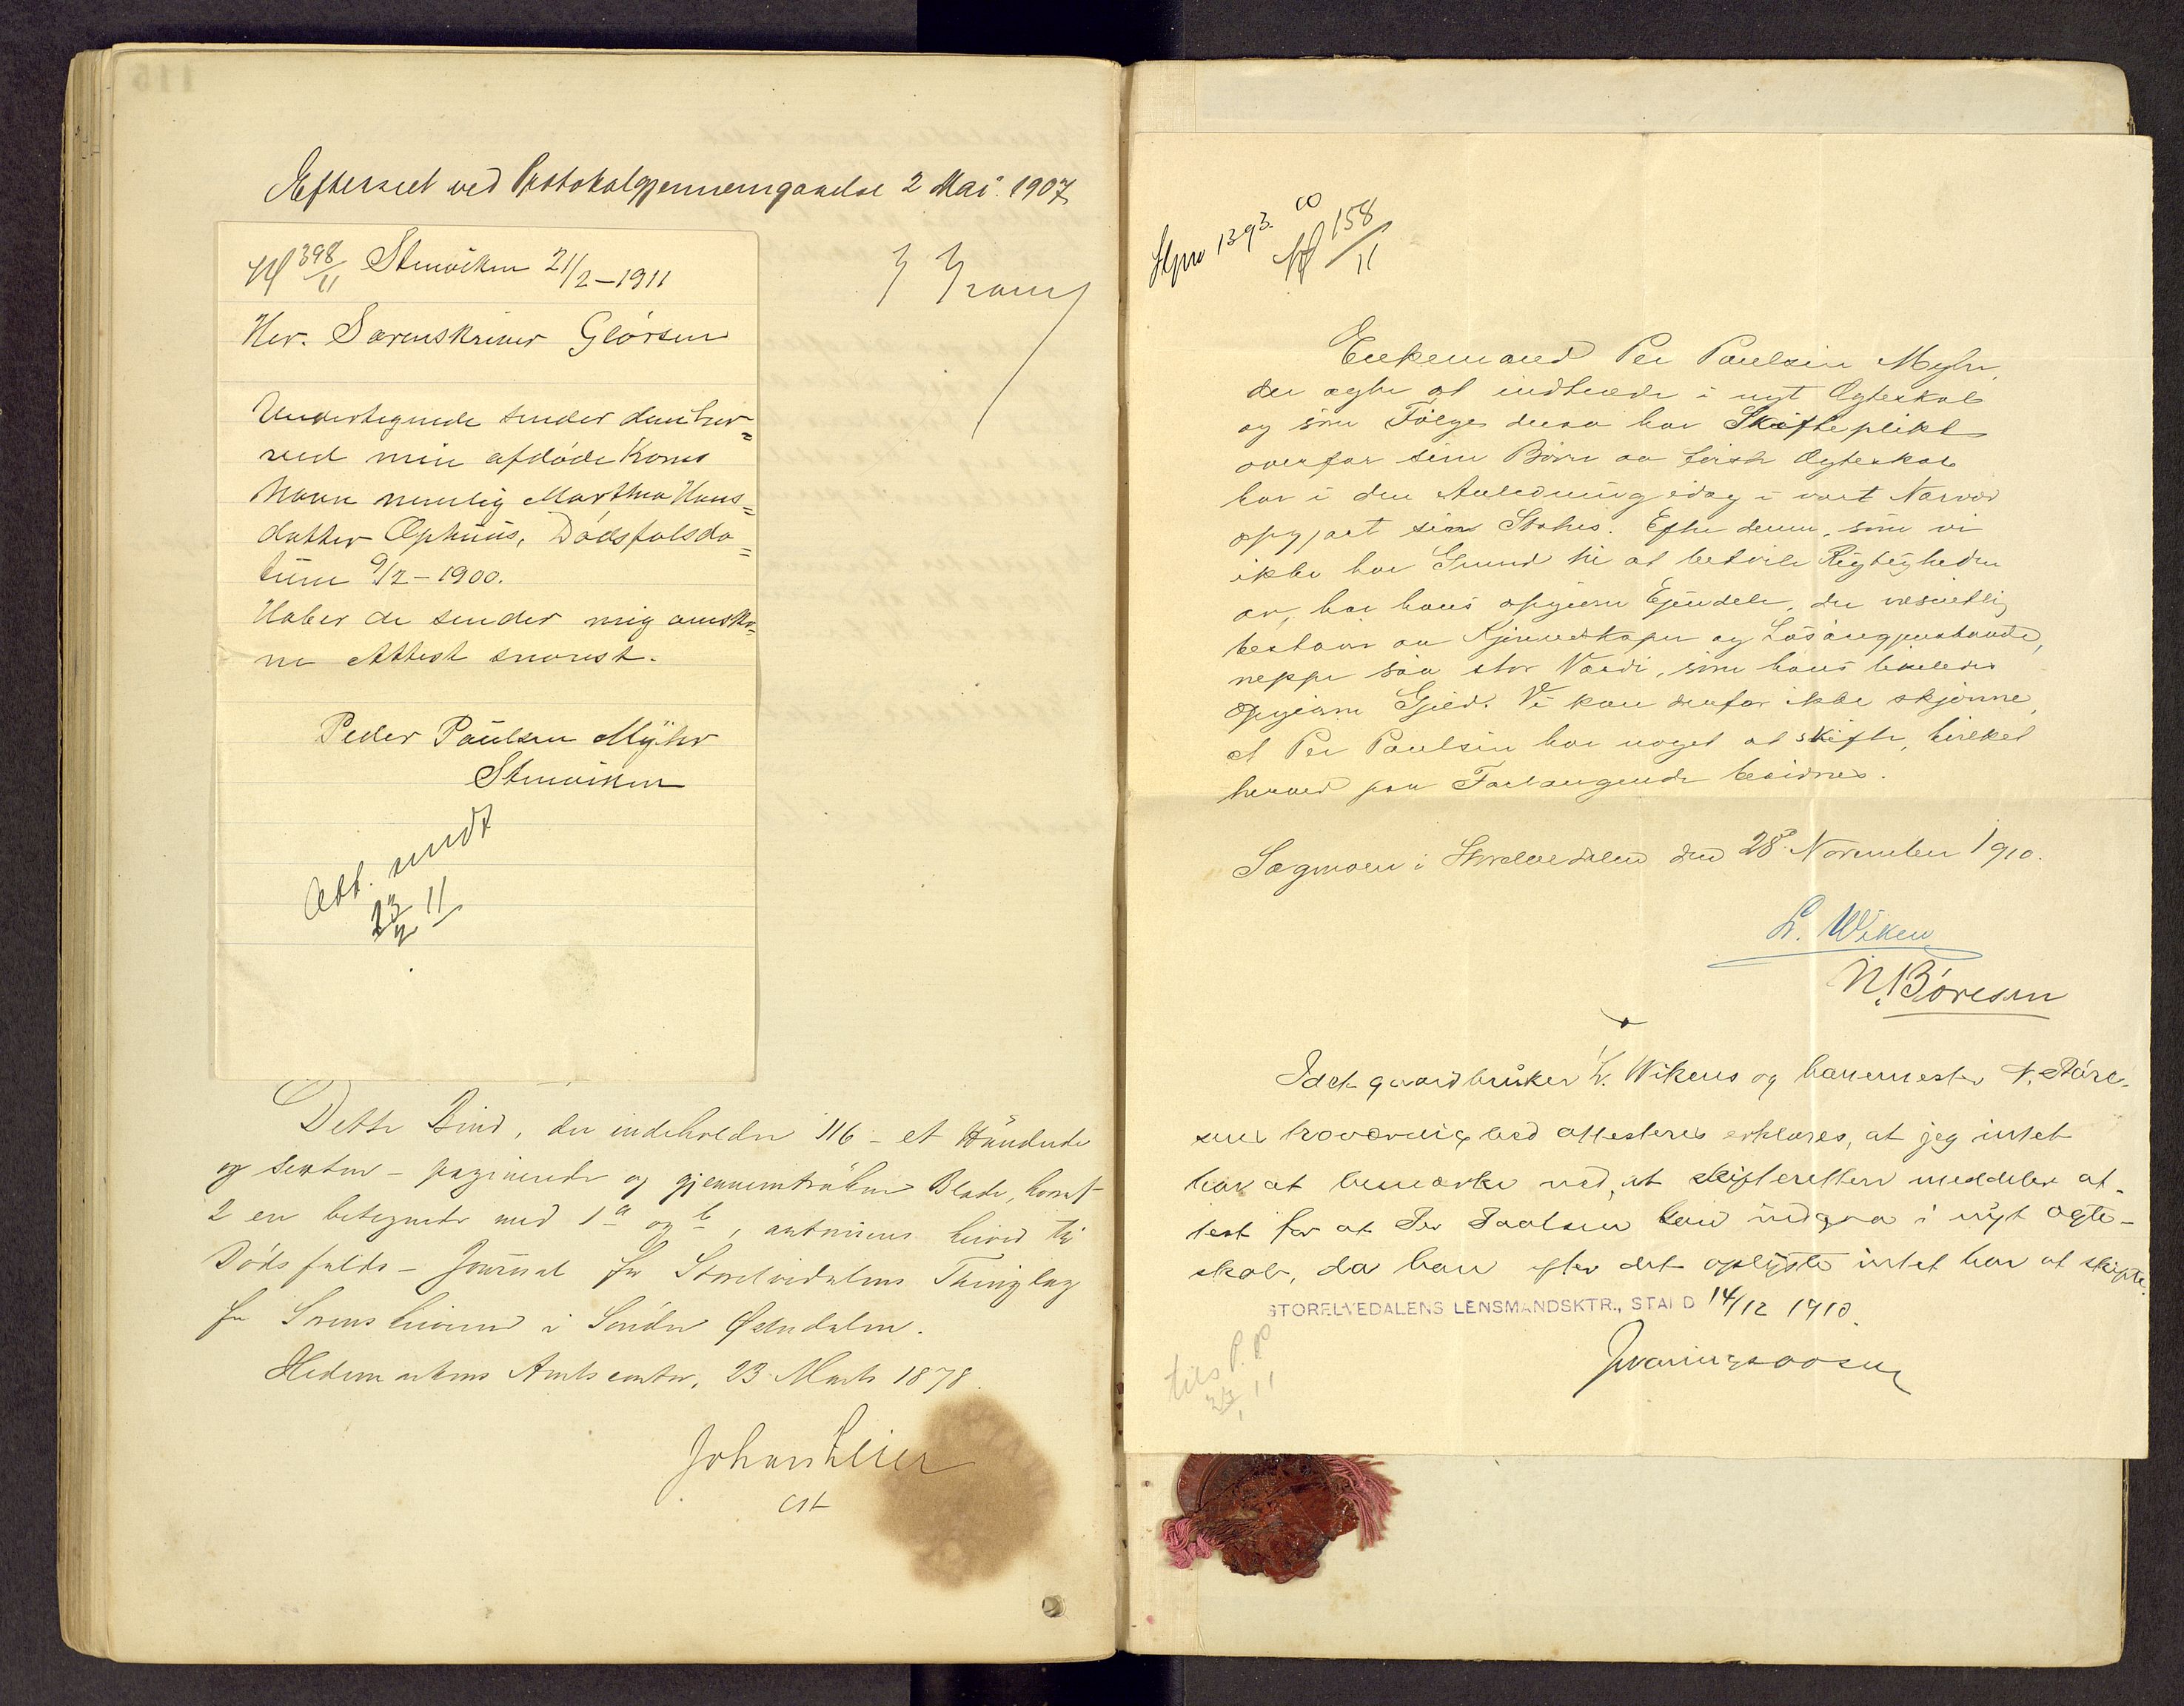 Efterseet ved Protokolgjennemgaaelse 2 Mai 1907
398/11 Stenviken 21/2-1911
Her. Sorenskriver Glørsen
Undertegnede sender dem her=
ved min afdøde Kones
Navn nemlig Marthea Hans=
datter Ophuus, Dødsfalsda=
tum 9/2-1900.
Haber de sender mig ønsk
ne Attest snarest.
Peder Paulsen Myhr
Stenviken
Att. sendt
23/2 11
Dette Bind, der indeholder 116 - et Hundrede
og sexten - paginerede og gjennemtrukne Blade, hvoraf
2 er betegnede med 1a og b, autoriseres herved til
Dødsfalds-Journal for Storelvedalens Thinglag
for Sorenskriveren i Søndre Østerdalen.
Hedemarkens Amtscontor, 23 Marts 1878.
Johan
cst
1393.
158/11
Enkemand Per Paulsen Myhr,
der agter at indtræde i nyt Ægteskab
og som Følge derav har Skifteplikt
overfor sine Børn av første Ægteskab
har i den Anledning idag i vort Nærvær
opgjort sin Status. Efter denne, som vi
ikke har Grund til at betvile Rigtigheden
av, har hans opgivne Eiendele, der væsentlig
bestaar av Kjørredskaper og Løsøregjenstande,
neppe saa stor Værdi, som hans likeledes
opgivne Gjeld. Vi kan derfor ikke skjønne,
at Per Paulsen har noget at skifte, hvilket
herved paa Forlangende bevidnes.
Sagmoen i Storelvedalen den 28 November 1910.
L. Wiken
N. Børesen
Idet gaardbruker L. Wikens og banemester N. Børe-
sens troværdighed attesteres erklæres, at jeg intet
har at bemærke ved, at skifteretten meddeler at-
test for at Per Paulsen kan indgaa i nyt ægte-
skab, da han efter det oplyste intet har at skifte.
STORELVEDALENS LENSMANDSKTR., STAI D 14/12 1910.